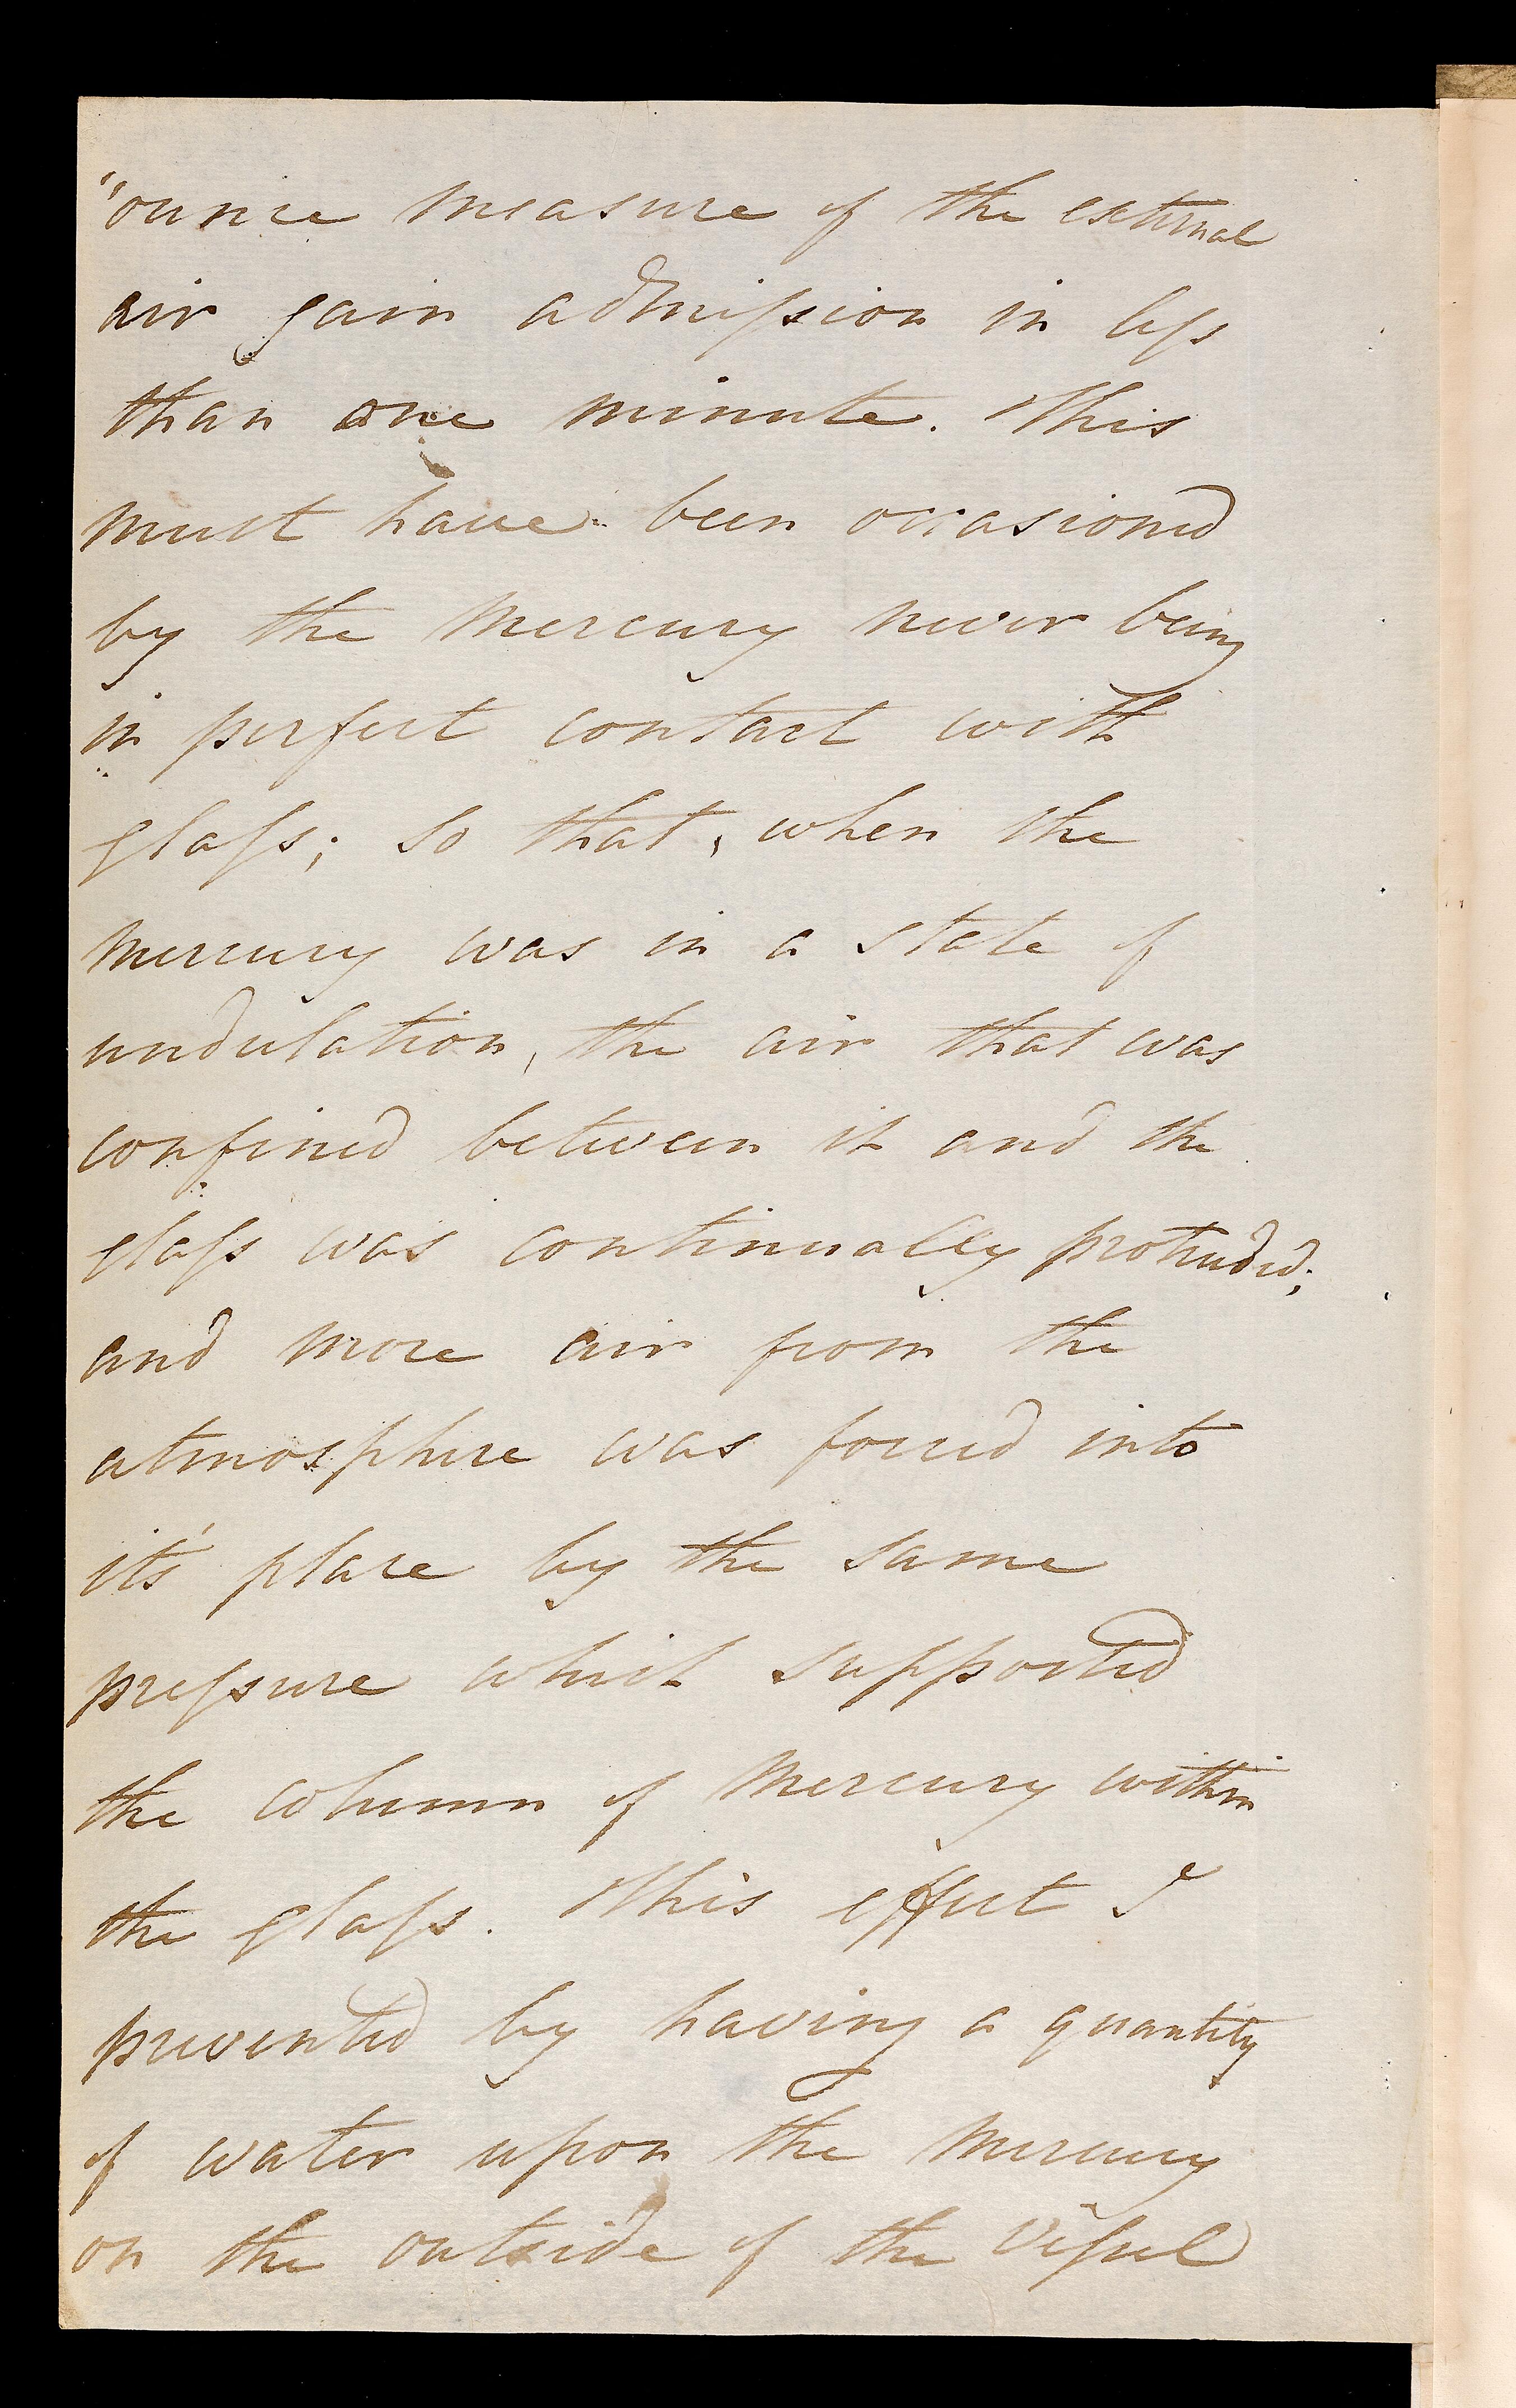 "ounce measure of the external
air gain admission in less
than one minute. This
must have been occasioned
by the mercury never being
in perfect contact with
glass; so that, when the
mercury was in a state of
undulation, the air that was
confined between it and the
glass was continually protruded;
and more air from the
atmosphere was forced into
it's place by the same
pressure which supported
the column of mercury within
the glass. This effect I
prevented by having a quantity
of water upon the mercury
on the outside of the vessel